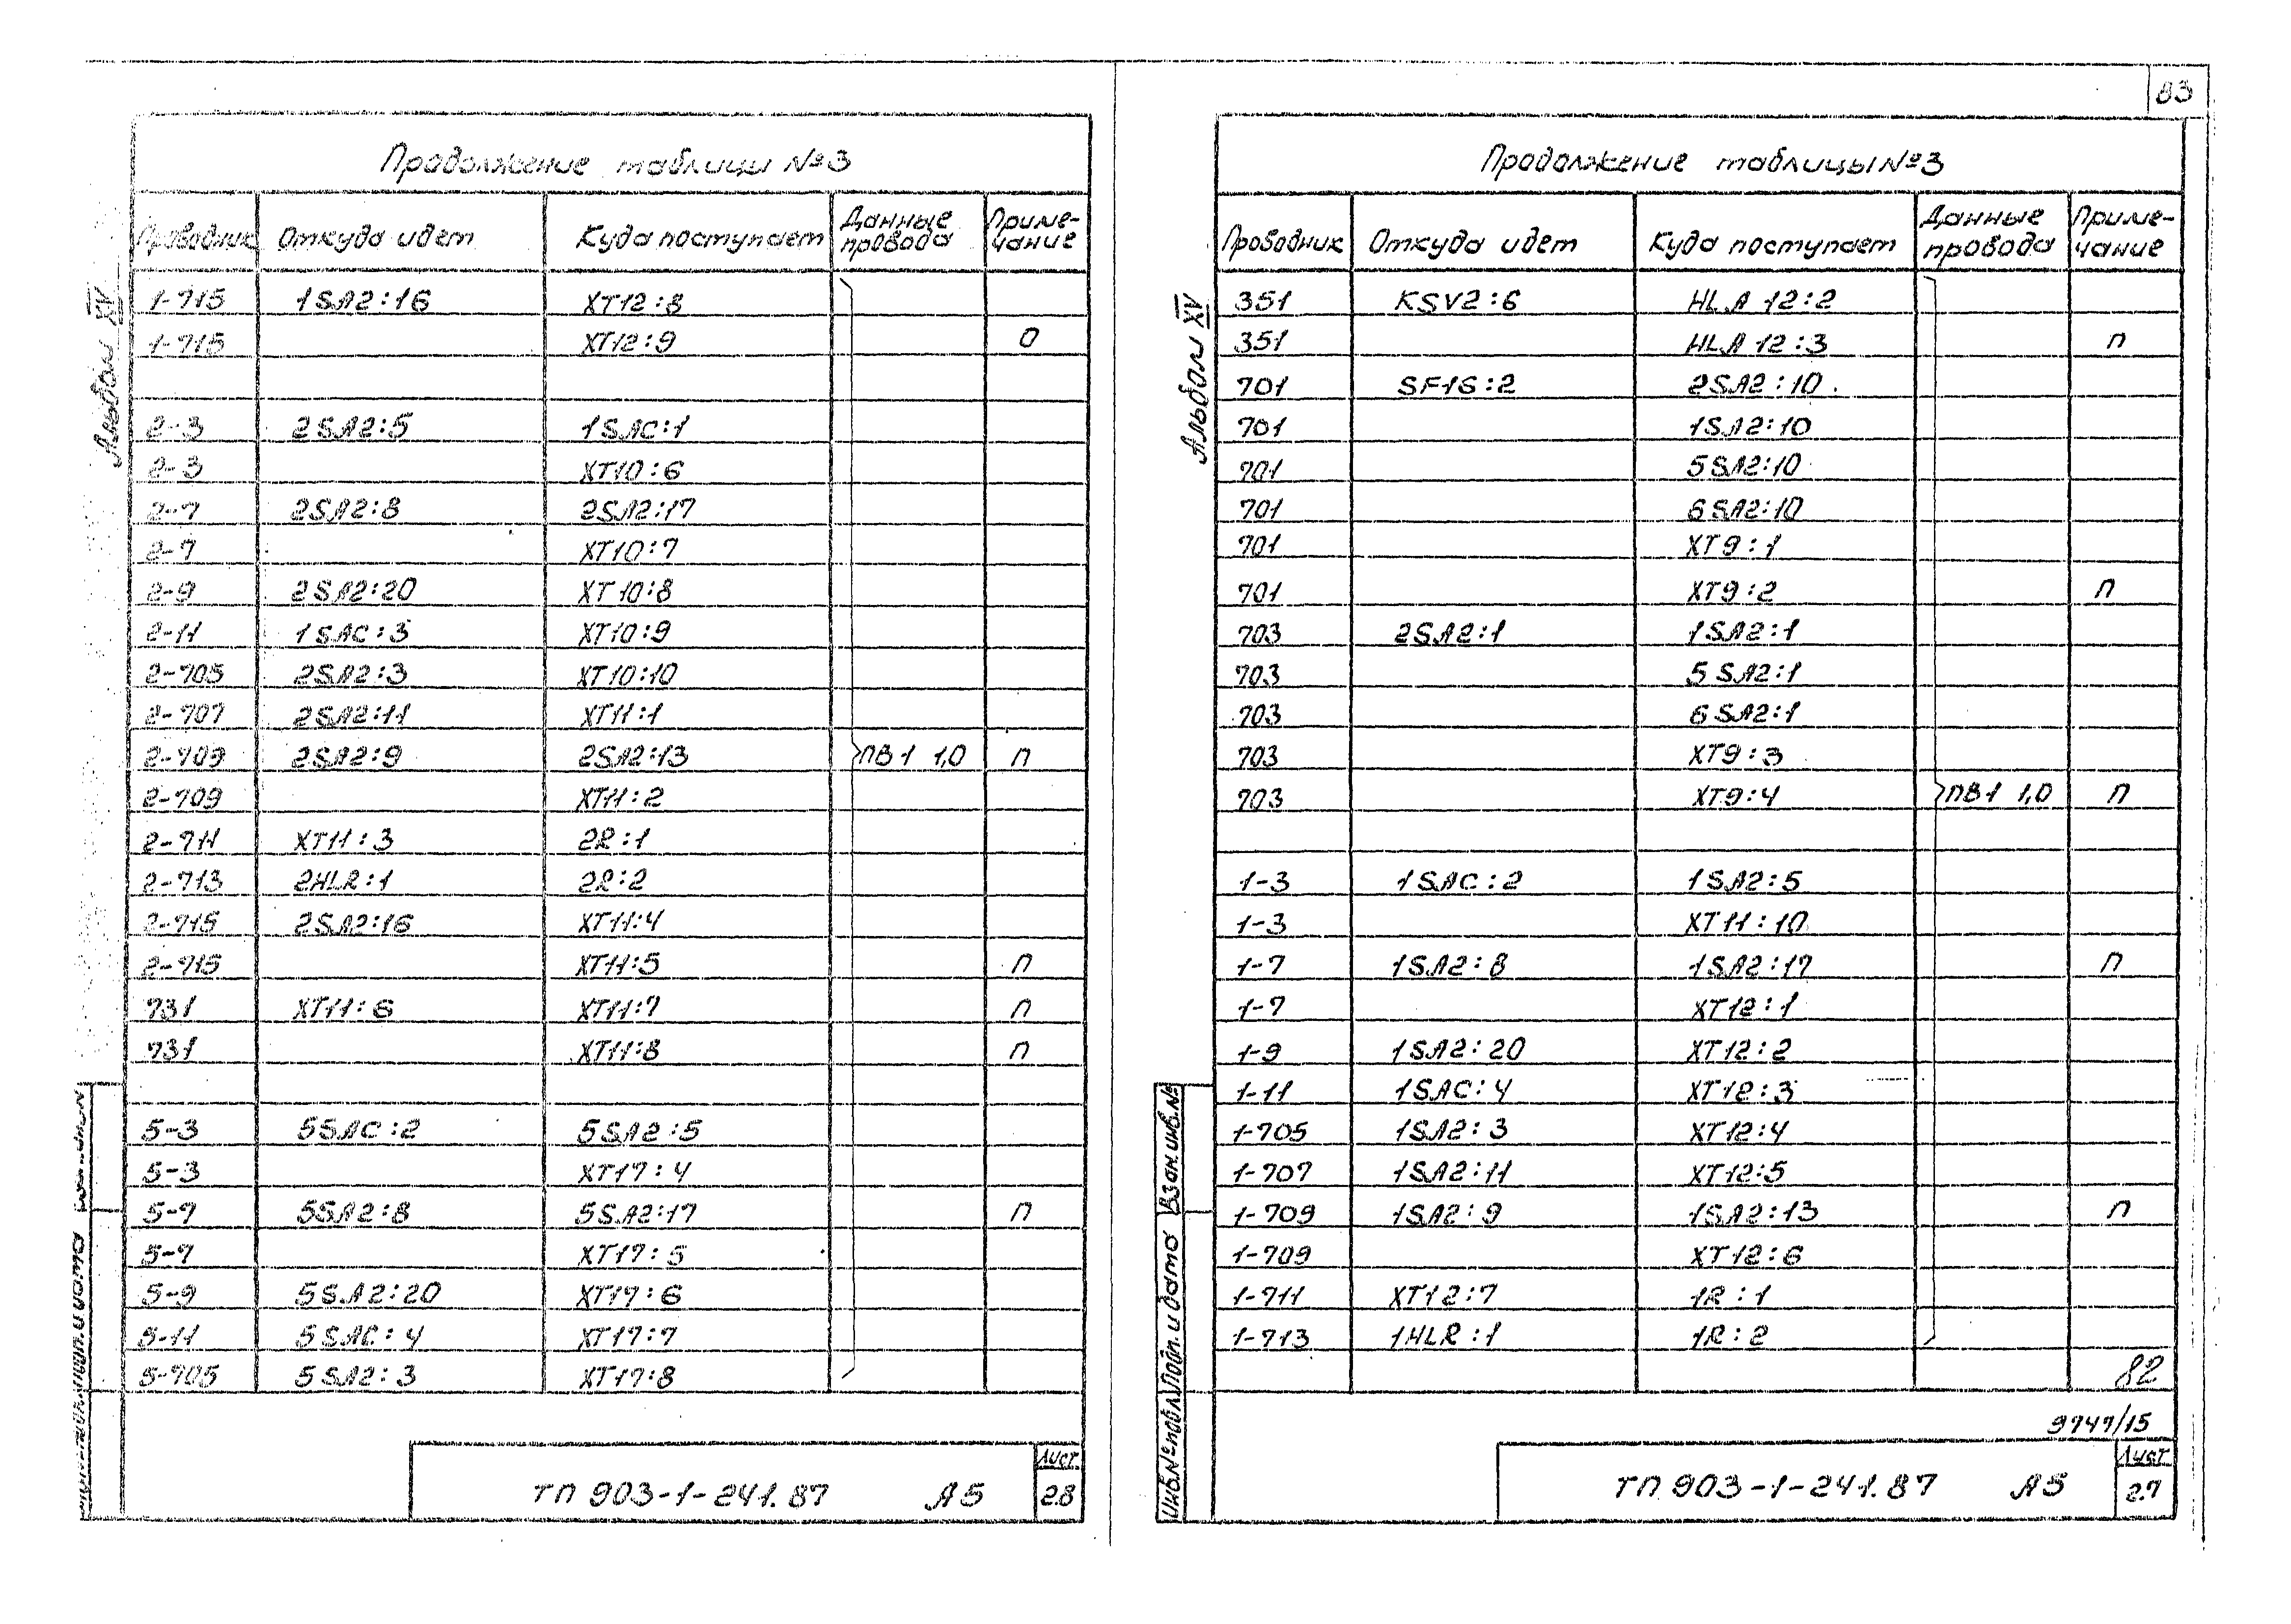 83
Продолжение таблицы №3
Проводник Откуда идет Куда поступает Данные провода Приме-чание
1-715 1SA2:16 XT12:8
1-715 XT12:9 П
2-3 2SA2:5 1SAC:1
2-3 XT10:6
2-7 2SA2:8 2SA2:17
2-7 XT10:7
2-9 2SA2:20 XT10:8
2-11 1SAC:3 XT10:9
2-705 2SA2:3 XT10:10
2-707 2SA2:11 XT11:1
2-709 2SA2:9 2SA2:13 ПВ1 1,0 П
2-709 XT11:2
2-711 XT11:3 2R:1
2-713 2HLR:1 2R:2
2-715 2SA2:16 XT11:4
2-715 XT11:5 П
731 XT11:6 XT11:7 П
731 XT11:8 П
5-3 5SAC:2 5SA2:5
5-3 XT17:4
5-7 5SA2:8 5SA2:17 П
5-7 XT17:5
5-9 5SA2:20 XT17:6
5-11 5SAC:4 XT17:7
5-705 5SA2:3 XT17:8
Альбом XV
ТП 903-1-241.87 А5
Лист
2.8
Продолжение таблицы №3
Проводник Откуда идет Куда поступает Данные провода Приме-чание
351 KSV2:6 HLA 12:2
351 HLA 12:3 П
701 SF16:2 2SA2:10
701 1SA2:10
701 5SA2:10
701 6SA2:10
701 XT9:1
701 XT9:2 П
703 2SA2:1 1SA2:1
703 5SA2:1
703 6SA2:1
703 XT9:3
703 XT9:4 ПВ1 1,0 П
1-3 1SAC:2 1SA2:5
1-3 XT11:10
1-7 1SA2:8 1SA2:17 П
1-7 XT12:1
1-9 1SA2:20 XT12:2
1-11 1SAC:4 XT12:3
1-705 1SA2:3 XT12:4
1-707 1SA2:11 XT12:5
1-709 1SA2:9 1SA2:13 П
1-709 XT12:6
1-711 XT12:7 1R:1
1-713 1HLR:1 1R:2
82
9747/15
Альбом XV
Взам.инв.№
Подп. и дата
Инв.№подл.
ТП 903-1-241.87 А5
Лист
2.7